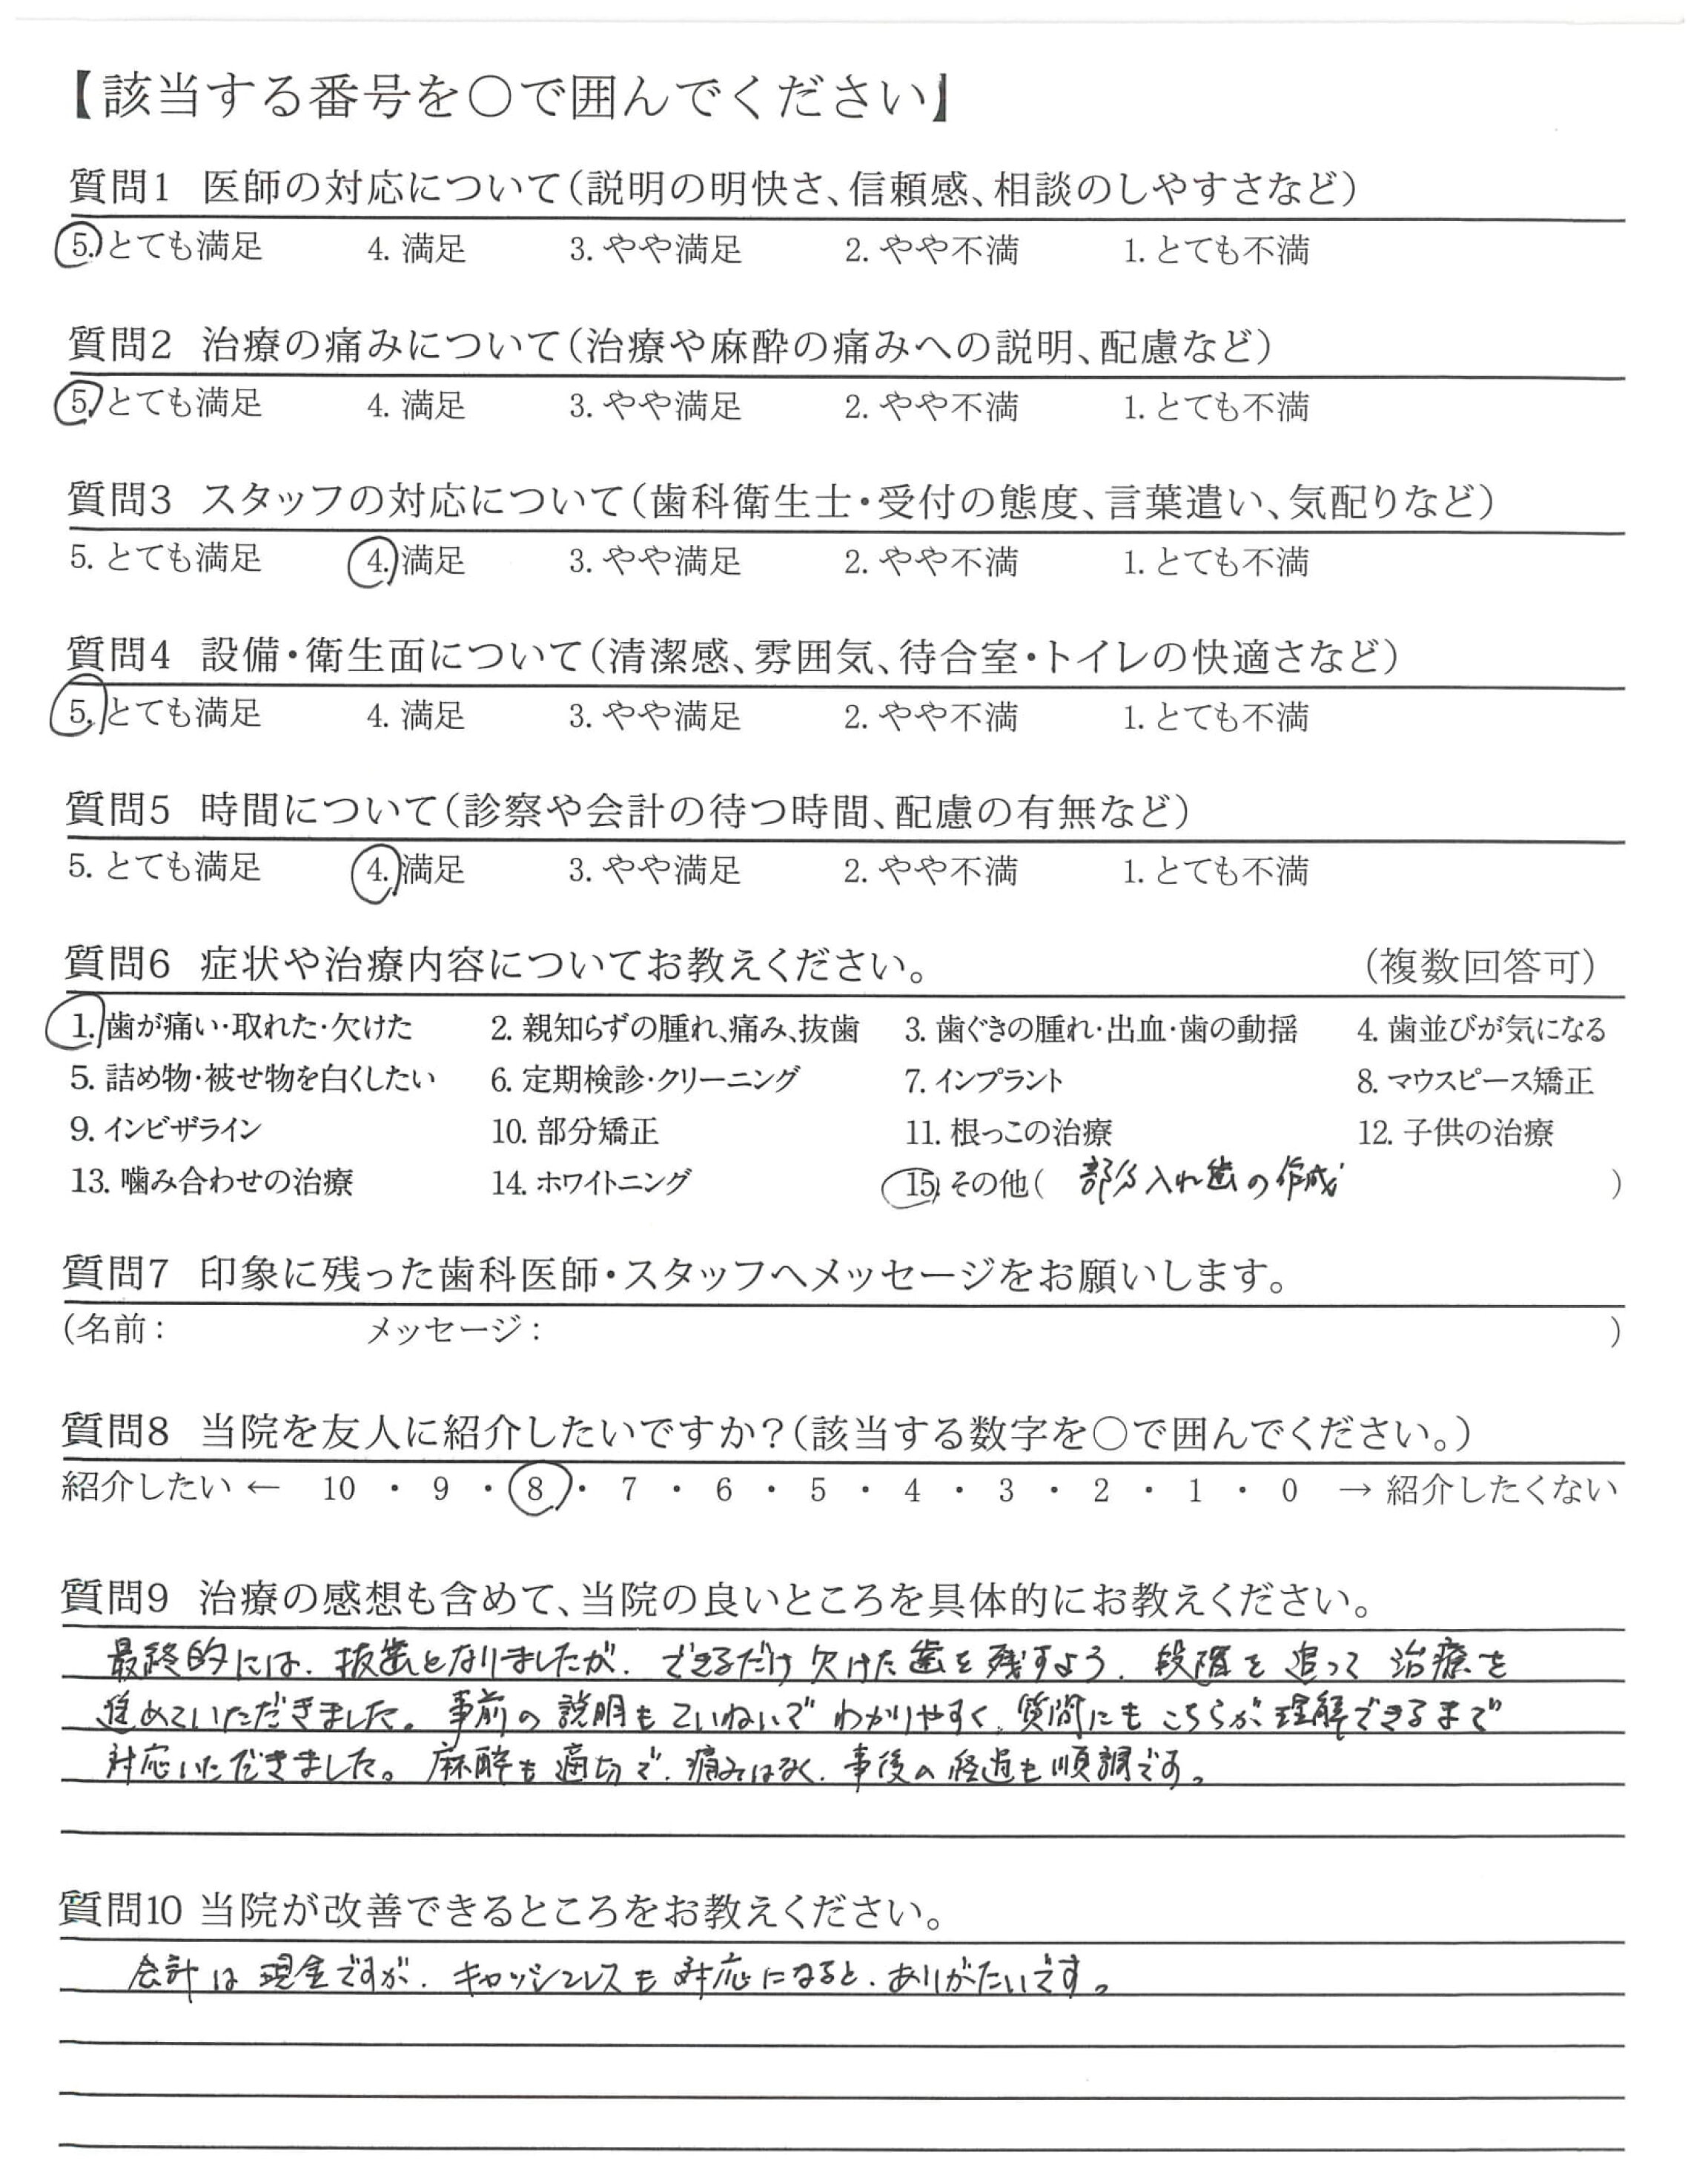 【該当する番号を○で囲んでください】
質問1 医師の対応について(説明の明快さ、信頼感、相談のしやすさなど)
5. とても満足 4. 満足 3. やや満足 2. やや不満 1. とても不満
質問2 治療の痛みについて(治療や麻酔の痛みへの説明、配慮など)
5. とても満足 4. 満足 3. やや満足 2. やや不満 1. とても不満
質問3 スタッフの対応について(歯科衛生士・受付の態度、言葉遣い、気配りなど)
5. とても満足 4. 満足 3. やや満足 2. やや不満 1. とても不満
質問4 設備・衛生面について(清潔感、雰囲気、待合室・トイレの快適さなど)
5. とても満足 4. 満足 3. やや満足 2. やや不満 1. とても不満
質問5 時間について(診察や会計の待つ時間、配慮の有無など)
5. とても満足 4. 満足 3. やや満足 2. やや不満 1. とても不満
質問6 症状や治療内容についてお教えください。 (複数回答可)
1. 歯が痛い・取れた・欠けた 2. 親知らずの腫れ、痛み、抜歯 3. 歯ぐきの腫れ・出血・歯の動揺 4. 歯並びが気になる
5. 詰め物・被せ物を白くしたい 6. 定期検診・クリーニング 7. インプラント 8. マウスピース矯正
9. インビザライン 10. 部分矯正 11. 根っこの治療 12. 子供の治療
13. 噛み合わせの治療 14. ホワイトニング 15. その他( 部分入れ歯の作成 )
質問7 印象に残った歯科医師・スタッフへメッセージをお願いします。
(名前: メッセージ: )
質問8 当院を友人に紹介したいですか?(該当する数字を○で囲んでください。)
紹介したい ← 10 ・ 9 ・ 8 ・ 7 ・ 6 ・ 5 ・ 4 ・ 3 ・ 2 ・ 1 ・ 0 → 紹介したくない
質問9 治療の感想も含めて、当院の良いところを具体的にお教えください。
最終的には、抜歯となりましたが、できるだけ欠けた歯を残すよう、段階を追って治療を
進めていただきました。事前の説明もていねいでわかりやすく、質問にもこちらが理解できるまで
対応いただきました。麻酔も適切で、痛みはなく、事後の経過も順調です。
質問10 当院が改善できるところをお教えください。
会計は現金ですが、キャッシュレスも対応になると、ありがたいです。